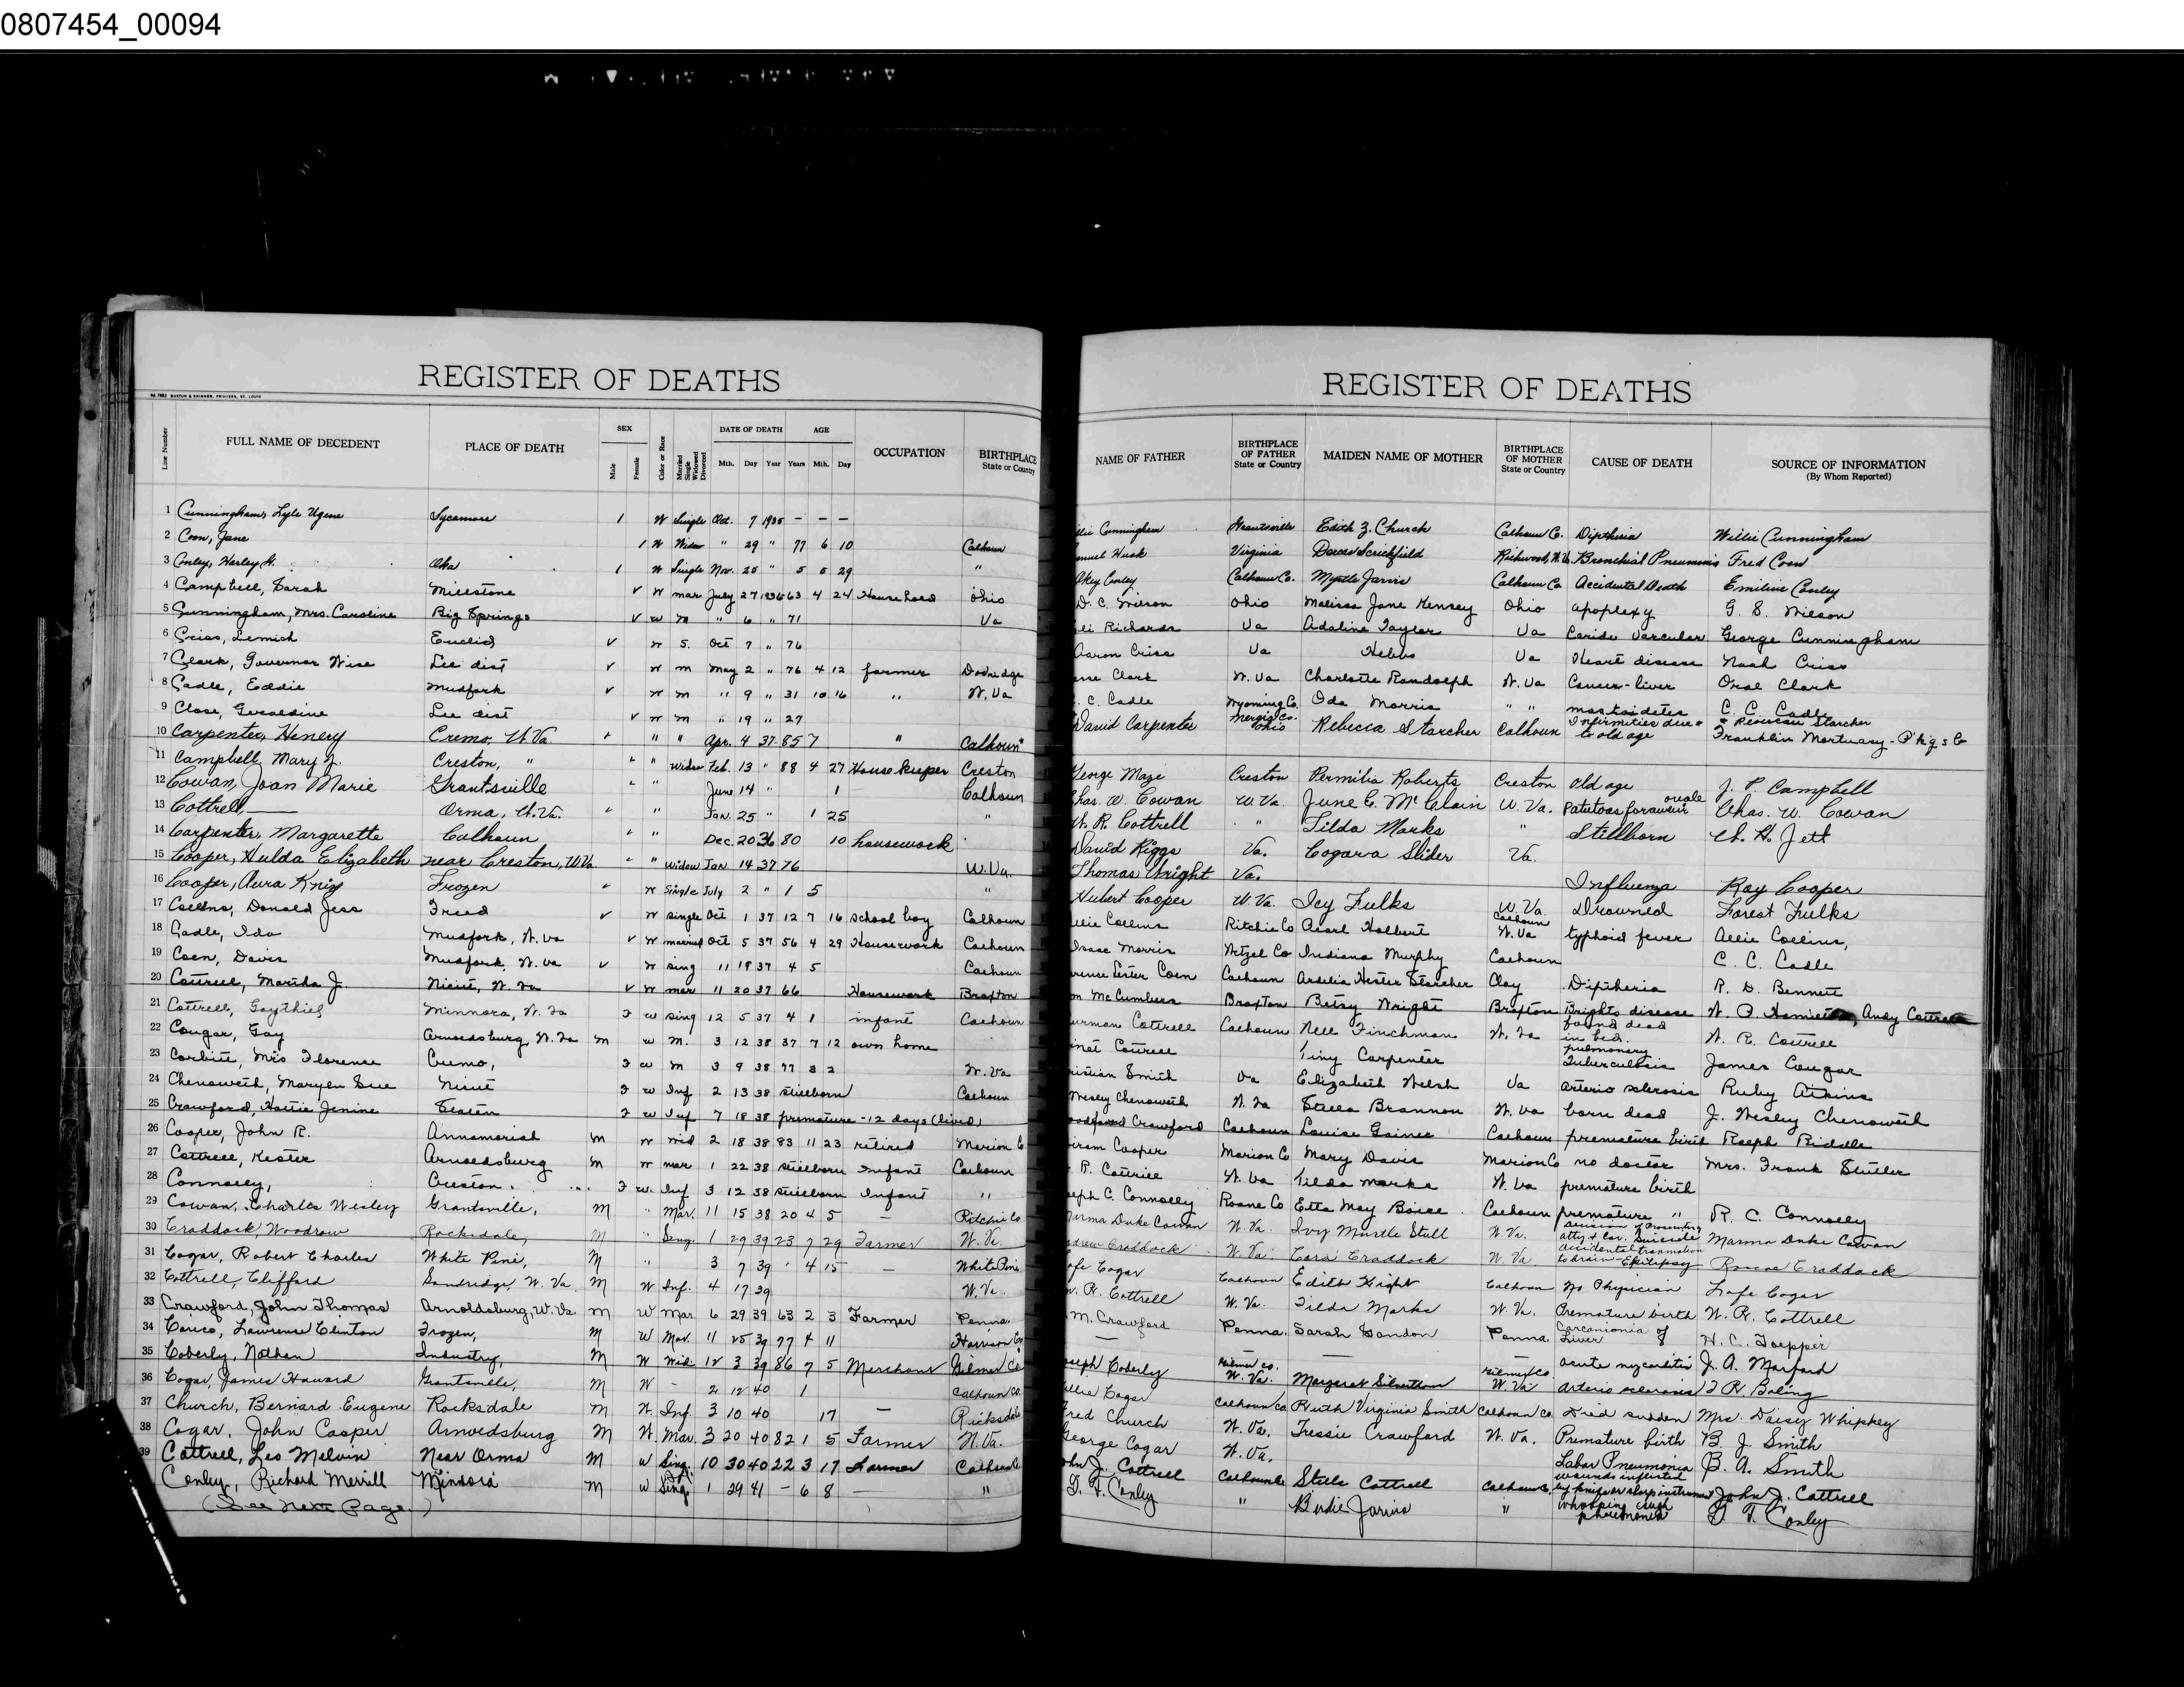 0807454_00094
REGISTER OF DEATHS
No. 7883 BUXTON & SKINNER, PRINTERS, ST. LOUIS
Line Number FULL NAME OF DECEDENT PLACE OF DEATH SEX Male Female Color or Race Married Single Widowed Divorced DATE OF DEATH Mth. Day Year AGE Years Mth. Day OCCUPATION BIRTHPLACE State or Country
1 Cunningham, Lyle Ugene Sycamore 1 W Single Oct. 7 1935 - - -
2 Coon, Jane 1 W Widow " 29 " 77 6 10 Calhoun
3 Conley, Harley H. Oka 1 W Single Nov. 25 " 5 5 29 "
4 Campbell, Sarah Millstone v W mar July 27 1936 63 4 24 Household Ohio
5 Cunningham, Mrs. Caroline Big Springs v w m " 6 " 71 Va
6 Criss, Lemich Euclid v w S. Oct 7 " 76
7 Clark, Governor Wise Lee dist v w m May 2 " 76 4 12 farmer Dodridge
8 Cadle, Eddie Mudfork v w m " 9 " 31 10 16 " W. Va
9 Close, Geraldine Lee dist v w m " 19 " 27
10 Carpenter, Henery Cremo, W.Va. " " Apr. 4 37 85 7 " Calhoun
11 Campbell, Mary J. Creston, " " Widow Feb. 13 " 88 4 27 House Keeper Creston
12 Cowan, Joan Marie Grantsville " June 14 " 1 Calhoun
13 Cottrell Orma, W.Va. " Jan. 25 " 1 25 "
14 Carpenter, Margarette Calhoun " Dec. 20 36 80 10 housework
15 Cooper, Hulda Elizabeth near Creston, W.Va " Widow Jan 14 37 76 W.Va.
16 Cooper, Aura Frozen W Single July 2 " 1 5 "
17 Collins, Donald Jess Freed v W single Oct 1 37 12 7 16 school boy Calhoun
18 Cadle, Ida Mudfork, W. Va v W married Oct 5 37 56 4 29 Housework Calhoun
19 Coen, Davis Mudfork, W. Va v W sing 11 19 37 4 5 Calhoun
20 Cottrell, Martha J. Nicut, W. Va v W mar 11 20 37 66 Housework Braxton
21 Cottrell, Minnora, W. Va F w sing 12 5 37 4 1 infant Calhoun
22 Cougar, Gay Arnoldsburg, W. Va m w M. 3 12 38 37 7 12 own home
23 Corbitt, Mrs Florence Cremo, F w m 3 9 38 77 8 2 W. Va
24 Chenoweth, Marylen Sue Nicut F w Inf 2 13 38 stillborn Calhoun
25 Crawford, Hattie Jenine F w Inf 7 18 38 premature - 12 days (lived)
26 Cooper, John R. Annamoriah m w wid 2 18 38 83 11 23 retired Marion Co
27 Cottrell, Kester Arnoldsburg m w mar 1 22 38 stillborn Infant Calhoun
28 Connolly, Creston F w. Inf 3 12 38 stillborn Infant "
29 Cowan, Charles Wesley Grantsville, M " Mar. 11 15 38 20 4 5 - Ritchie Co
30 Craddock, Woodrow Rocksdale, M " Sing. 1 29 39 23 7 29 Farmer W. Va.
31 Cogar, Robert Charles White Pine, M " 3 7 39 4 15 - White Pine
32 Cottrell, Clifford W. Va M W Inf. 4 17 39 W. Va.
33 Crawford, John Thomas Arnoldsburg, W. Va. m W Mar 6 29 39 63 2 3 Farmer Penna.
34 Lawrence Clinton Frozen, M W Mar. 11 25 39 77 4 11 Harrison Co
35 Coberly, Nathan Industry, M W Wid. 12 3 39 86 7 5 Merchant Gilmer Co
36 Cogar, James Howard Grantsville, M W - 2 12 40 1 Calhoun Co
37 Church, Bernard Eugene Rocksdale M W. Inf. 3 10 40 17 -
38 Cogar, John Casper Arnoldsburg M W. Mar. 3 20 40 82 1 5 Farmer W. Va.
39 Cottrell, Leo Melvin Near Orma M W Sing. 10 30 40 22 3 17 Farmer Calhoun
Conley, Richard Merrill Minnora M W Sing. 1 29 41 - 6 8 - "
(See Next Page)
REGISTER OF DEATHS
NAME OF FATHER BIRTHPLACE OF FATHER State or Country MAIDEN NAME OF MOTHER BIRTHPLACE OF MOTHER State or Country CAUSE OF DEATH SOURCE OF INFORMATION (By Whom Reported)
Cunningham Grantsville Edith Z. Church Calhoun Co. Diptheria Willie Cunningham
Husk Virginia Dorcas Scrichfield Richwood, W.Va. Bronchial Pneumonia Fred Coon
Okey Conley Calhoun Co. Myrtle Jarvis Calhoun Co Accidental Death Emiline Conley
D. C. Wilson Ohio Malissa Jane Kensey Ohio apoplexy G. S. Wilson
Eli Richards Va Adaline Taylor Va Cardio Vascular George Cunningham
Aaron Criss Va Hebbs Va Heart disease Noah Criss
Clark W. Va Charlotte Randolph W. Va Cancer-liver Oral Clark
C. C. Cadle Wyoming Co. Oda Morris " " mastoidetes C. C. Cadle
David Carpenter Ohio Rebecca Starcher Calhoun Infirmities due to old age Starcher Franklin Mortuary
George Maze Creston Permilia Roberts Creston old age J. P. Campbell
Chas. W. Cowan W. Va. June E. McClain W. Va. ovale Chas. W. Cowan
W. R. Cottrell " Tilda Marks " Stillborn W. H. Jett
David Riggs Va. Slider Va.
Thomas Wright Va. Influenza Roy Cooper
Hubert Cooper W. Va. Icy Fulks W. Va. Drowned Forest Fulks
Collins Ritchie Co Pearl Holbert Calhoun W. Va typhoid fever Allie Collins,
Isaac Morris Wetzel Co Indiana Murphy Calhoun C. C. Cadle
Lester Coen Calhoun Ardelia Hester Starcher Clay Diptheria R. D. Bennett
McCumbers Braxton Betsy Wright Braxton Brights disease Andy Cottrell
Cottrell Calhoun Nell Finchman W. Va found dead in bed. W. R. Cottrell
Cottrell Tiny Carpenter pulmonary Tuberculosis James Cougar
Smith Va Elizabeth Welsh Va arterio sclerosis Ruby Atkins
Wesley Chenoweth W. Va Stella Brannon W. Va born dead J. Wesley Chenoweth
Crawford Calhoun Louise Gainer Calhoun premature birth Ralph Riddle
Hiram Cooper Marion Co Mary Davis Marion Co no doctor Mrs. Frank Stutler
R. Cottrell W. Va Tilda Marks W. Va premature birth
C. Connolly Roane Co Etta May Boice Calhoun premature " R. C. Connolly
Duke Cowan W. Va. Ivy Myrtle Stull W. Va. Decision of Prosecuting Atty & Cor. Suicide Duke Cowan
Craddock W. Va. Cora Craddock W. Va to brain - Epilepsy Roscoe Craddock
Lafe Cogar Calhoun Edith Hight Calhoun No Physician Lafe Cogar
W. R. Cottrell W. Va. Tilda Marks W. Va. Premature birth W. R. Cottrell
M. Crawford Penna. Sarah Penna. of Liver H. C. Toepper
— — — acute J. A. Morford
Joseph Coberly Gilmer Co. W. Va. Margaret Gilmer Co W. Va Arterio sclerosis
Cogar Calhoun Co Ruth Virginia Smith Calhoun Co Died sudden Mrs. Daisy Whipkey
Fred Church W. Va. Tressie Crawford W. Va. Premature birth B. J. Smith
George Cogar W. Va. Lobar Pneumonia B. A. Smith
John J. Cottrell Calhoun Co Stella Cottrell Calhoun Co. wounds inflicted by knife or sharp instrument John J. Cottrell
G. T. Conley " Birdie Jarvis " whooping cough pneumonia G. T. Conley